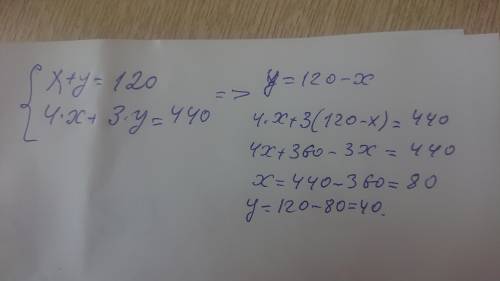 x+y=120
4·x+3·y=440
=> y=120-x
4·x+3(120-x)=440
4x+360-3x=440
x=440-360=80
y=120-80=40.